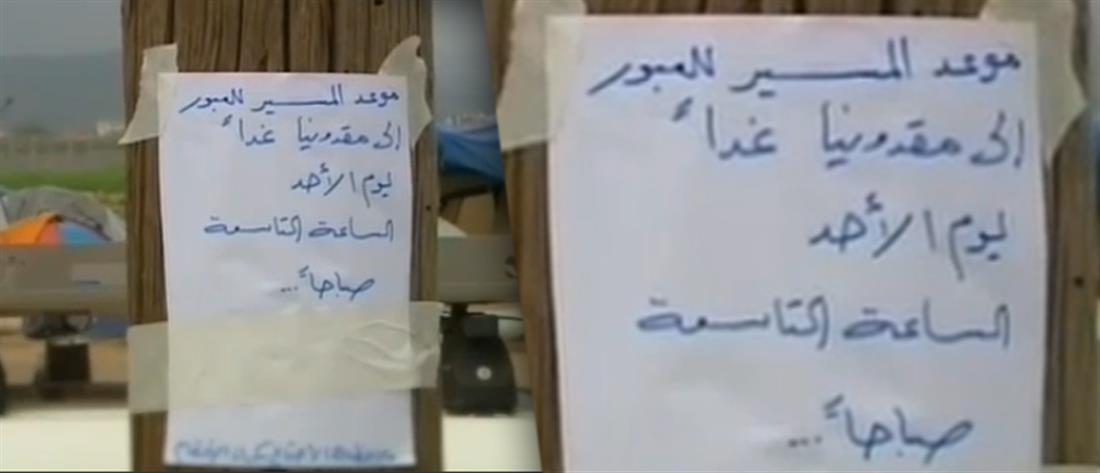 موعد المسير للعبور
إلى مقدونيا غداً
ليوم الأحد
الساعة التاسعة
صباحاً...
موعد المسير للعبور
إلى مقدونيا غداً
ليوم الأحد
الساعة التاسعة
صباحاً...